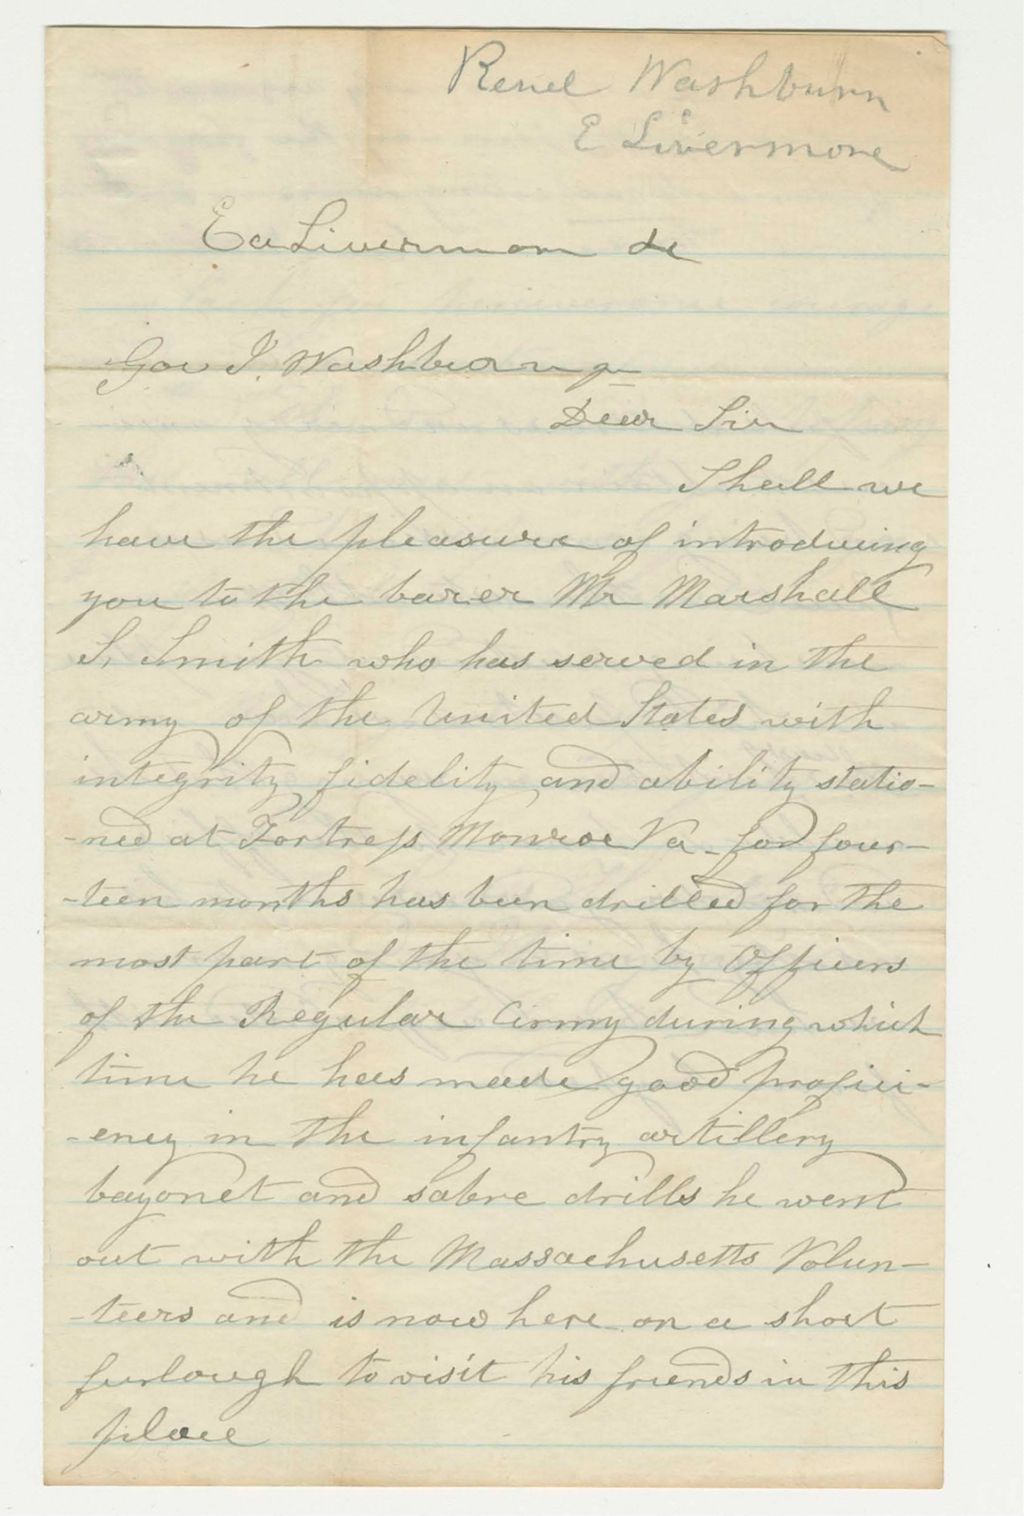 Reuel Washburn
E Livermore
Ea Livermore
Gov I. Washburn
Dear Sir
Shall we
have the pleasure of introducing
you to the barer Mr Marshall
S. Smith who has served in the
army of the United States with
integrity fidelity and ability statio-
-ned at Fortress Monroe Va for four-
-teen months has been drilled for the
most part of the time by Officers
of the Regular Army during which
time he has made good profici-
-ency in the infantry artillery
bayonet and sabre drills he went
out with the Massachusetts Volun-
-teers and is now here on a short
furlough to visit his friends in this
place